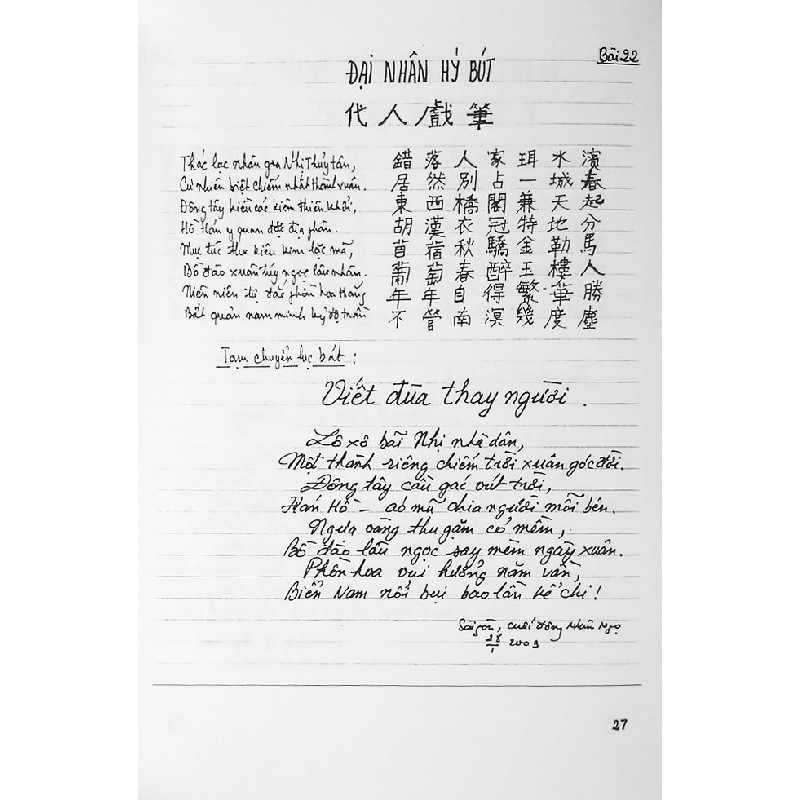 Bài 22
ĐẠI NHÂN HÝ BÚT
代人戲筆
Thác lạc nhân gia Nhị Thủy tân,
Cư nhiên biệt chiếm nhất thành xuân.
Đông tây kiều các kiêm thiên khởi,
Hồ Hán y quan đặc địa phân.
Mục túc thu kiêu kim lặc mã,
Bồ đào xuân túy ngọc lâu nhân.
Niên niên tự đắc phồn hoa thắng
Bất quản nam minh kỷ độ trần
錯落人家珥水濱
居然別占一城春
東西橋閣兼天起
胡漢衣冠特地分
苜蓿秋驕金勒馬
葡萄春醉玉樓人
年年自得繁華勝
不管南溟幾度塵
Tạm chuyển lục bát:
Viết đùa thay người.
Lô xô bãi Nhị nhà dân,
Một thành riêng chiếm trời xuân góc đời.
Đông tây cầu gác vút trời,
Hán Hồ - áo mũ chia người mỗi bên.
Ngựa vàng thu gặm cỏ mềm,
Bồ đào lầu ngọc say mèm ngày xuân.
Phồn hoa vui hưởng năm vần,
Biển Nam nổi bụi bao lần kể chi!
Saigon, cuối đông Nhâm Ngọ
28/1 2003
27